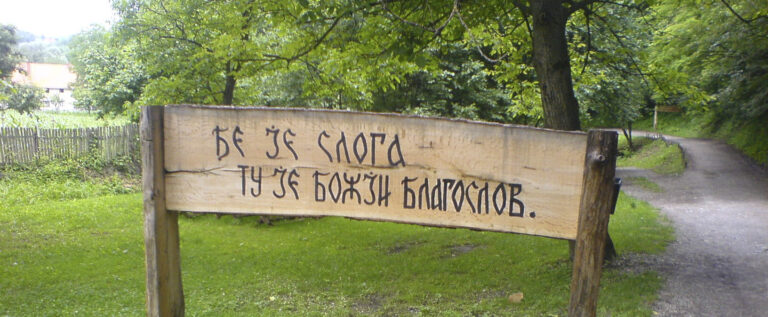 ЂЕ ЈЕ СЛОГА
ТУ ЈЕ БОЖЈИ БЛАГОСЛОВ.